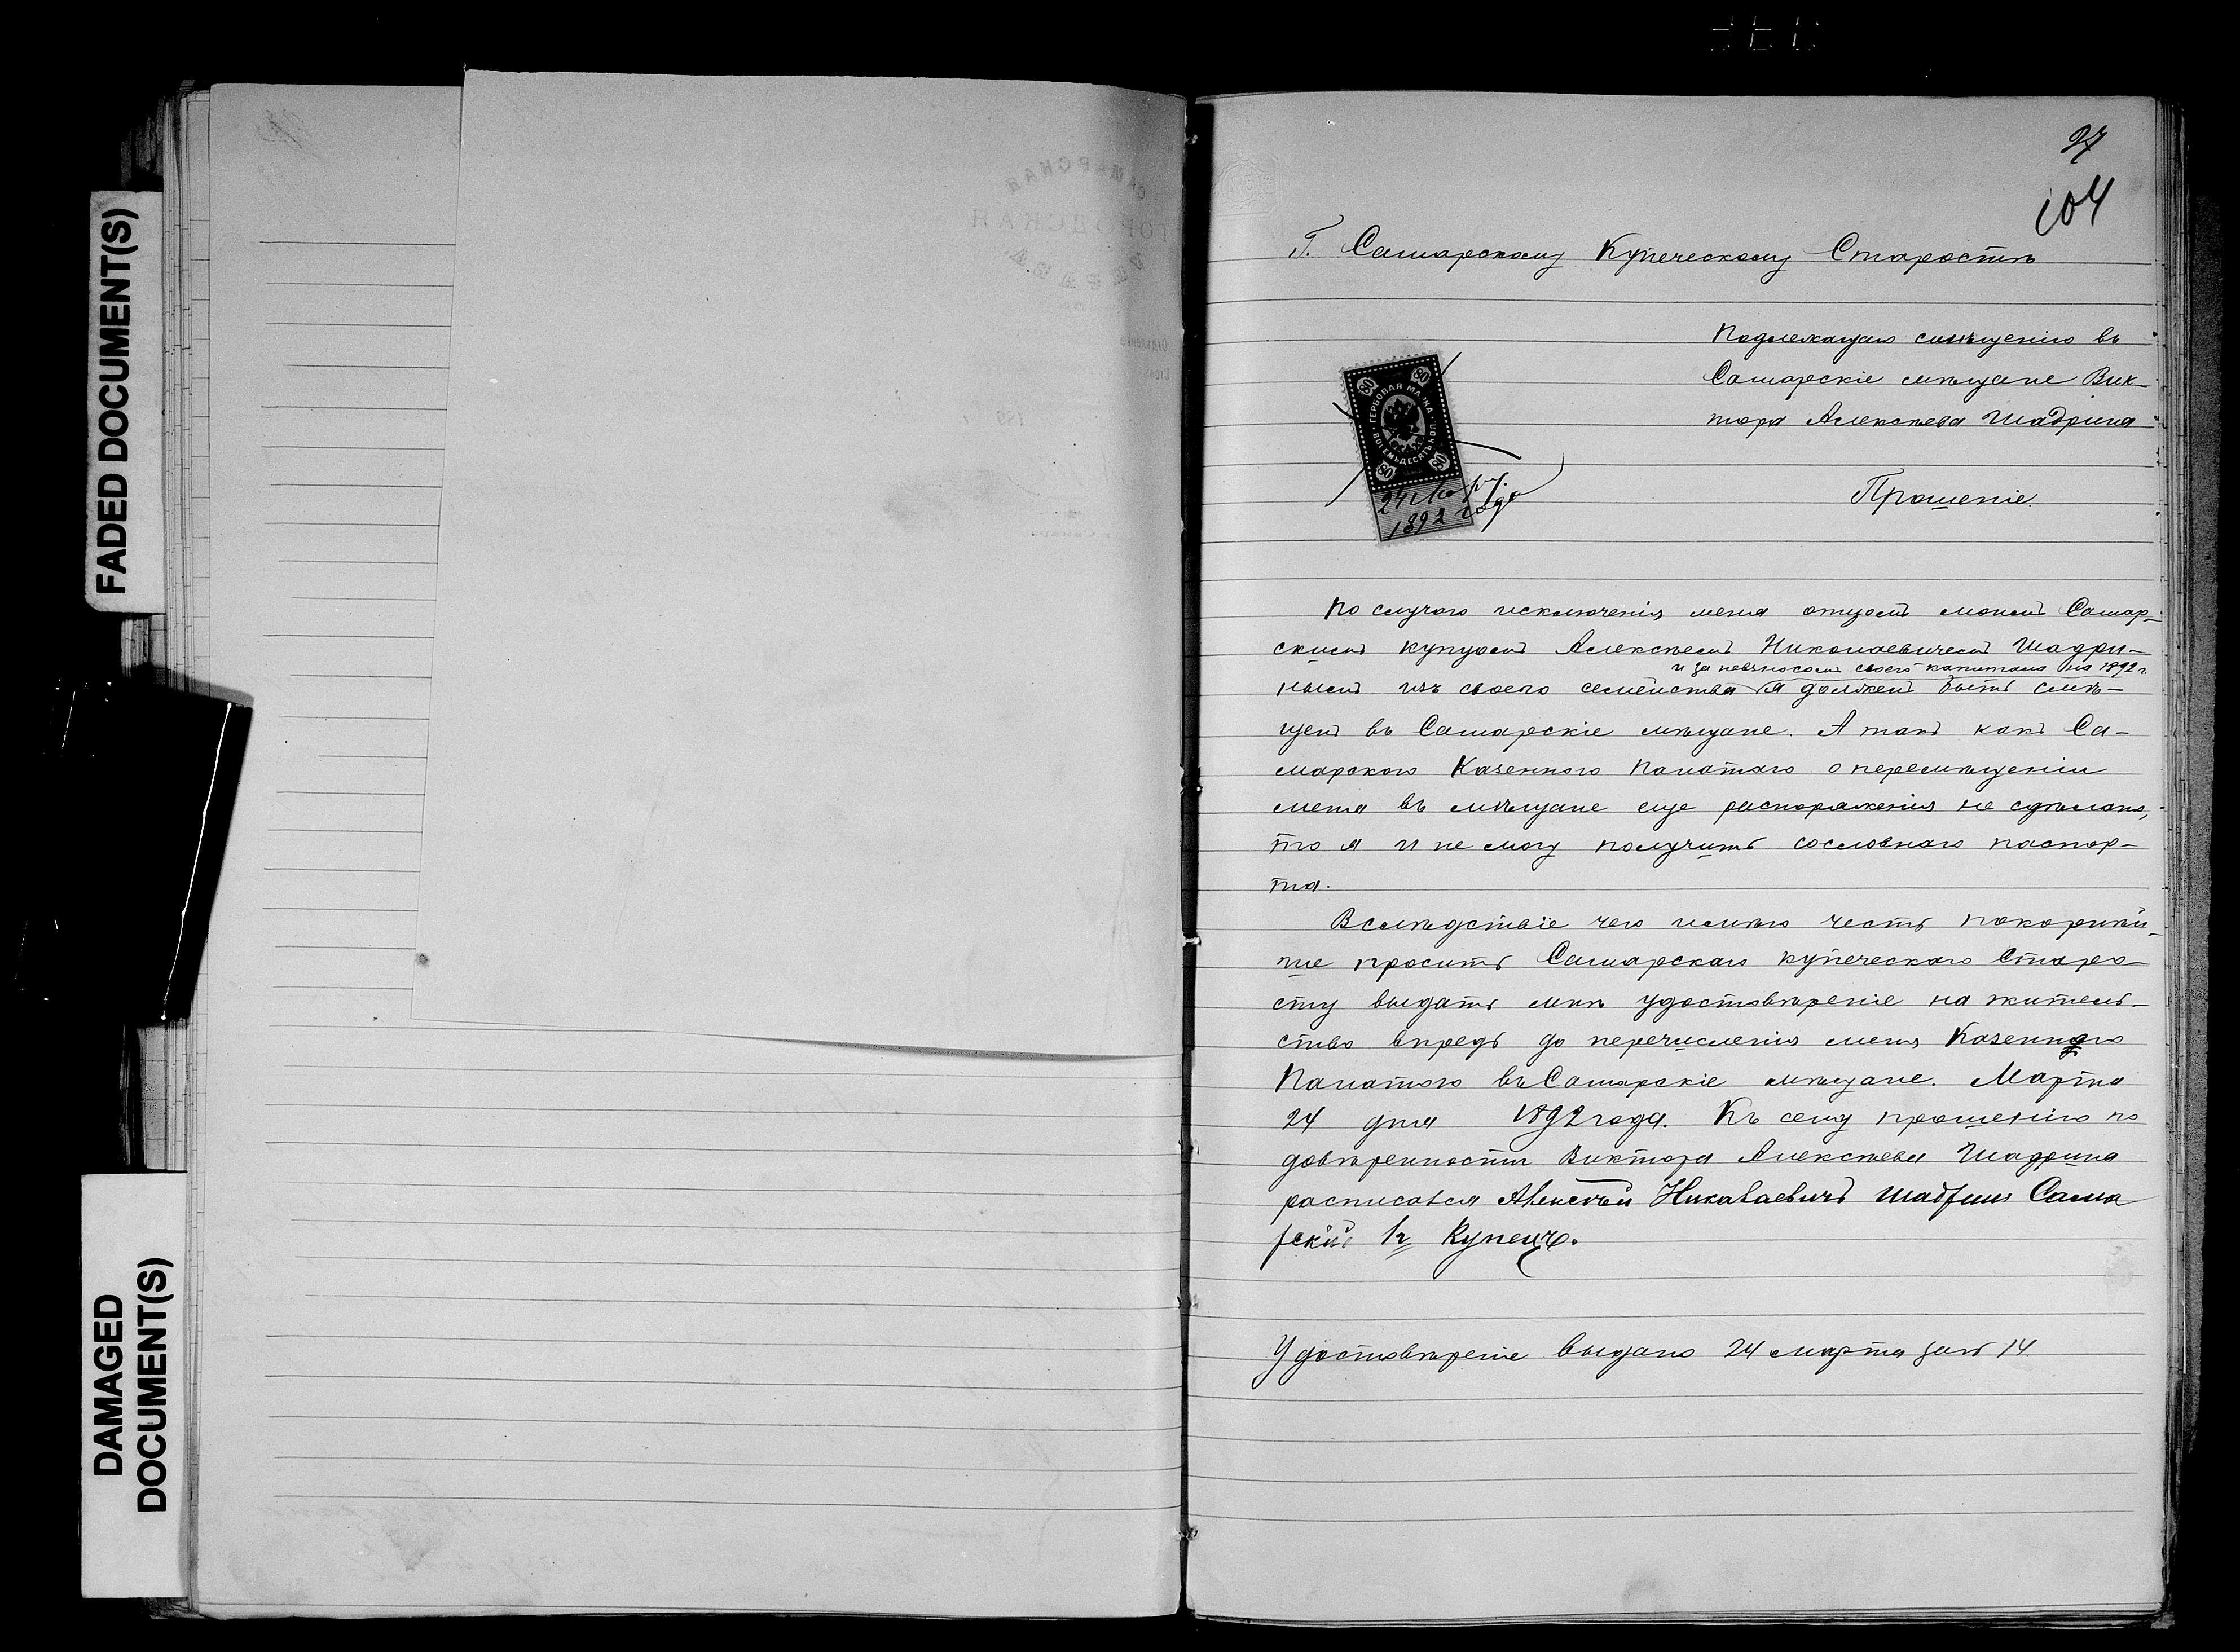 FADED DOCUMENT(S)
DAMAGED
DOCUMENT(S)
САМАРСКАЯ
ГОРОДСКАЯ
27
104
Г. Самарскому Купеческому Старостѣ
Подлежащаго смѣщенію въ
Самарскіе мѣщане Вик-
тора Алексѣева Шадрина
ГЕРБОВАЯ МАРКА
ВОСЕМЬДЕСЯТЪ КОП.
80 80
80 80
24 Мар.
1892 года
Прошеніе.
По случаю исключенія меня отцомъ моимъ Самар-
скимъ купцомъ Алексѣемъ Николаевичемъ Шадри-
и за невзносомъ своего капитала на 1892 г.
нымъ изъ своего семейства я долженъ быть смѣ-
щенъ въ Самарскіе мѣщане. А такъ какъ Са-
марскою Казенною Палатою о перемѣщеніи
меня въ мѣщане еще распоряженія не сдѣлано,
то я и не могу получить сословнаго паспор-
та.
Вслѣдствіе чего имѣю честь покорнѣй-
ше просить Самарскаго купеческаго Старо-
сту выдать мнѣ удостовѣреніе на житель-
ство впредь до перечисленія меня Казенною
Палатою въ Самарскіе мѣщане. Марта
24 дня 1892 года. Къ сему прошенію по
довѣренности Виктора Алексѣева Шадрина
расписался Алексѣй Николаевичъ Шадринъ Сама
рскій Купецъ.
Удостовѣреніе выдано 24 марта за № 14